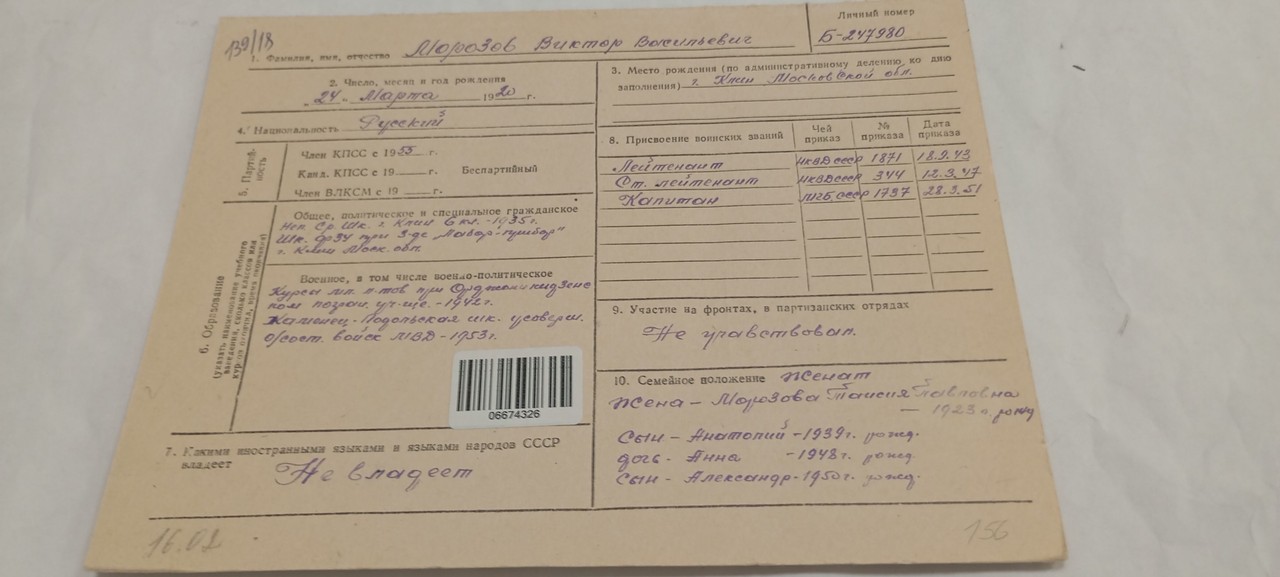 139/18
Личный номер
Б-247980
1. Фамилия, имя, отчество Морозов Виктор Васильевич
2. Число, месяц и год рождения
„24" Марта 1920 г.
3. Место рождения (по административному делению, ко дню
заполнения) г. Клин Московской обл.
4. Национальность Русский
5. Партий-
ность
Член КПСС с 1955 г.
Канд. КПСС с 19 г. Беспартийный
Член ВЛКСМ с 19 г.
6. Образование
(указать наименование учебного
заведения, сколько классов или
курсов окончил, время окончания)
Общее, политическое и специальное гражданское
Неп. Ср. Шк. г. Клин 6 кл. - 1935 г.
Шк. ФЗУ при з-де „Лабор-прибор"
г. Клин Моск. обл.
Военное, в том числе военно-политическое
Курсы мл. л-тов при Орджоникидзевс
ком погран. уч-ще. - 1942 г.
Каменец-Подольская шк. усоверш.
о/сост. войск МВД - 1953 г.
06674326
7. Какими иностранными языками и языками народов СССР
владеет
Не владеет
8. Присвоение воинских званий Чей приказ № приказа Дата приказа
Лейтенант НКВД СССР 1871 18.9.43
Ст. лейтенант НКВД СССР 344 12.3.47
Капитан МГБ СССР 1737 28.3.51
9. Участие на фронтах, в партизанских отрядах
Не участвовал.
10. Семейное положение Женат
Жена - Морозова Таисия Павловна
- 1923 г. рожд
Сын - Анатолий - 1939 г. рожд.
дочь - Анна - 1948 г. рожд.
Сын - Александр - 1950 г. рожд.
16.01
156